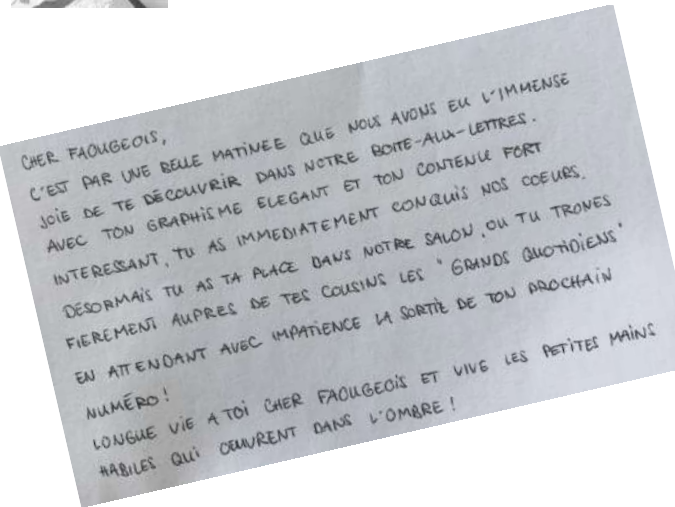 CHER FAOUGEOIS,
C'EST PAR UNE BELLE MATINEE QUE NOUS AVONS EU L'IMMENSE
JOIE DE TE DÉCOUVRIR DANS NOTRE BOITE-AUX-LETTRES.
AVEC TON GRAPHISME ELEGANT ET TON CONTENU FORT
INTERESSANT, TU AS IMMEDIATEMENT CONQUIS NOS COEURS.
DESORMAIS TU AS TA PLACE DANS NOTRE SALON, OU TU TRONES
FIEREMENT AUPRES DE TES COUSINS LES "GRANDS QUOTIDIENS"
EN ATTENDANT AVEC IMPATIENCE LA SORTIE DE TON PROCHAIN
NUMÉRO!
LONGUE VIE A TOI CHER FAOUGEOIS ET VIVE LES PETITES MAINS
HABILES QUI OEUVRENT DANS L'OMBRE!